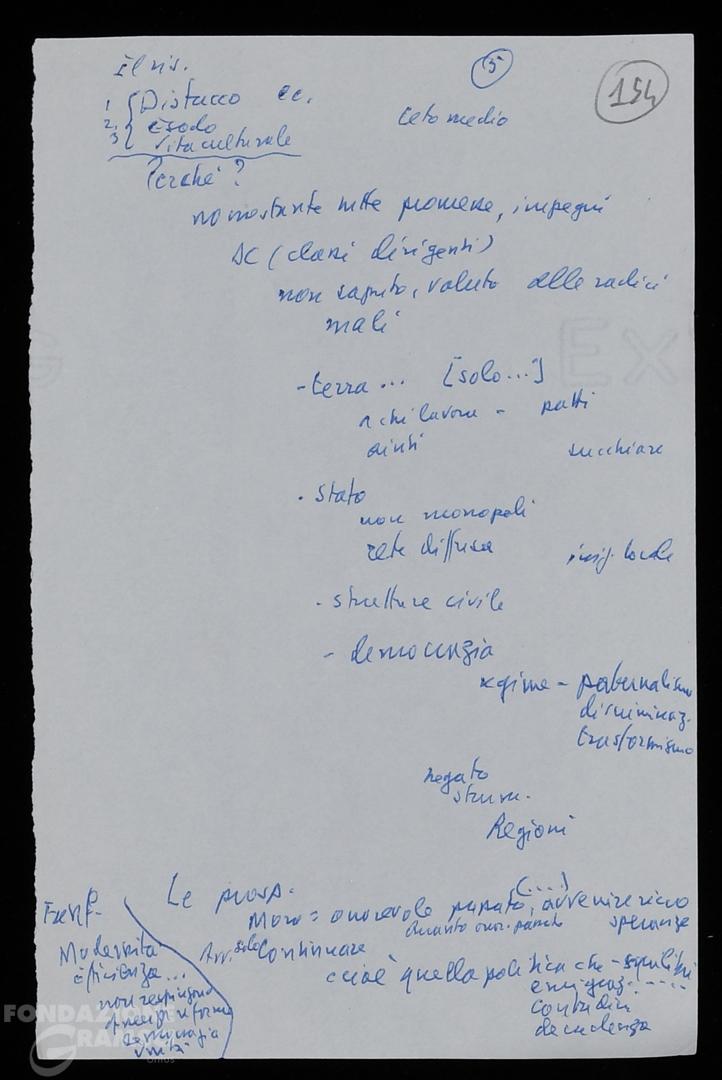 Il ris.
5
154
1 Distacco ec.
2. esodo
3 vita culturale
ceto medio
Perché?
nonostante tutte promesse, impegni
DC (classi dirigenti)
non saputo, voluto alle radici
mali
- terra ... [solo ...]
a chi lavora - patti
aiuti succhiare
. Stato
non monopoli
rete diffusa
. strutture civile
- democrazia
regime - paternalismo
discriminaz.
trasformismo
negato
strum.
Regioni
Le prosp. (....)
Moro = onorevole passato, avvenire ricco
speranze
solo Continuare
cioè quella politica che - squilibri
emigraz. ....
contadini
decadenza
Modernità
efficienza ...
non respingono
democrazia
unità
FONDAZIONE
GRAMSCI
onlus
Ex